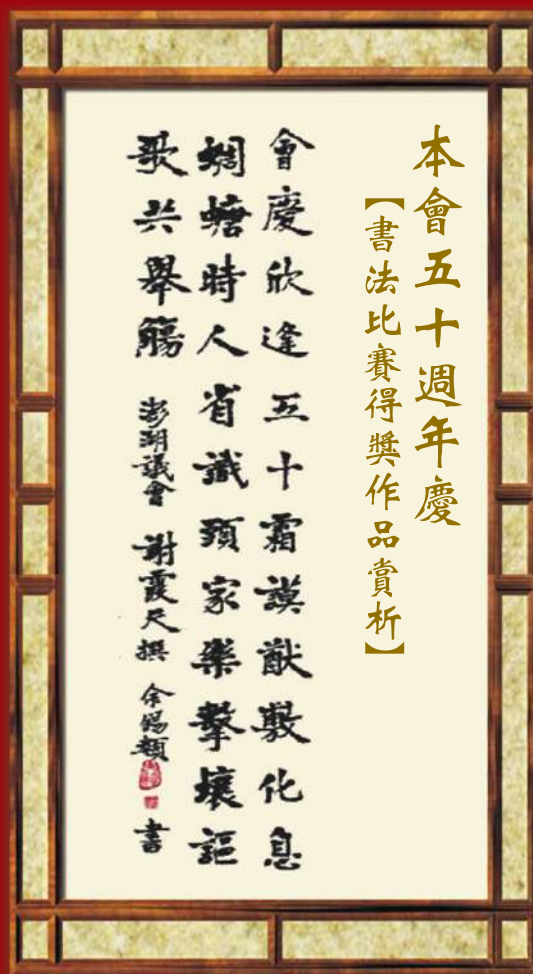 本會五十週年慶
【書法比賽得獎作品賞析】
會慶欣逢五十霜謨猷敷化息
蜩螗時人省識頭家樂擊壤謳
歌共舉觴 澎湖議會 謝霞撰 余錫類 書